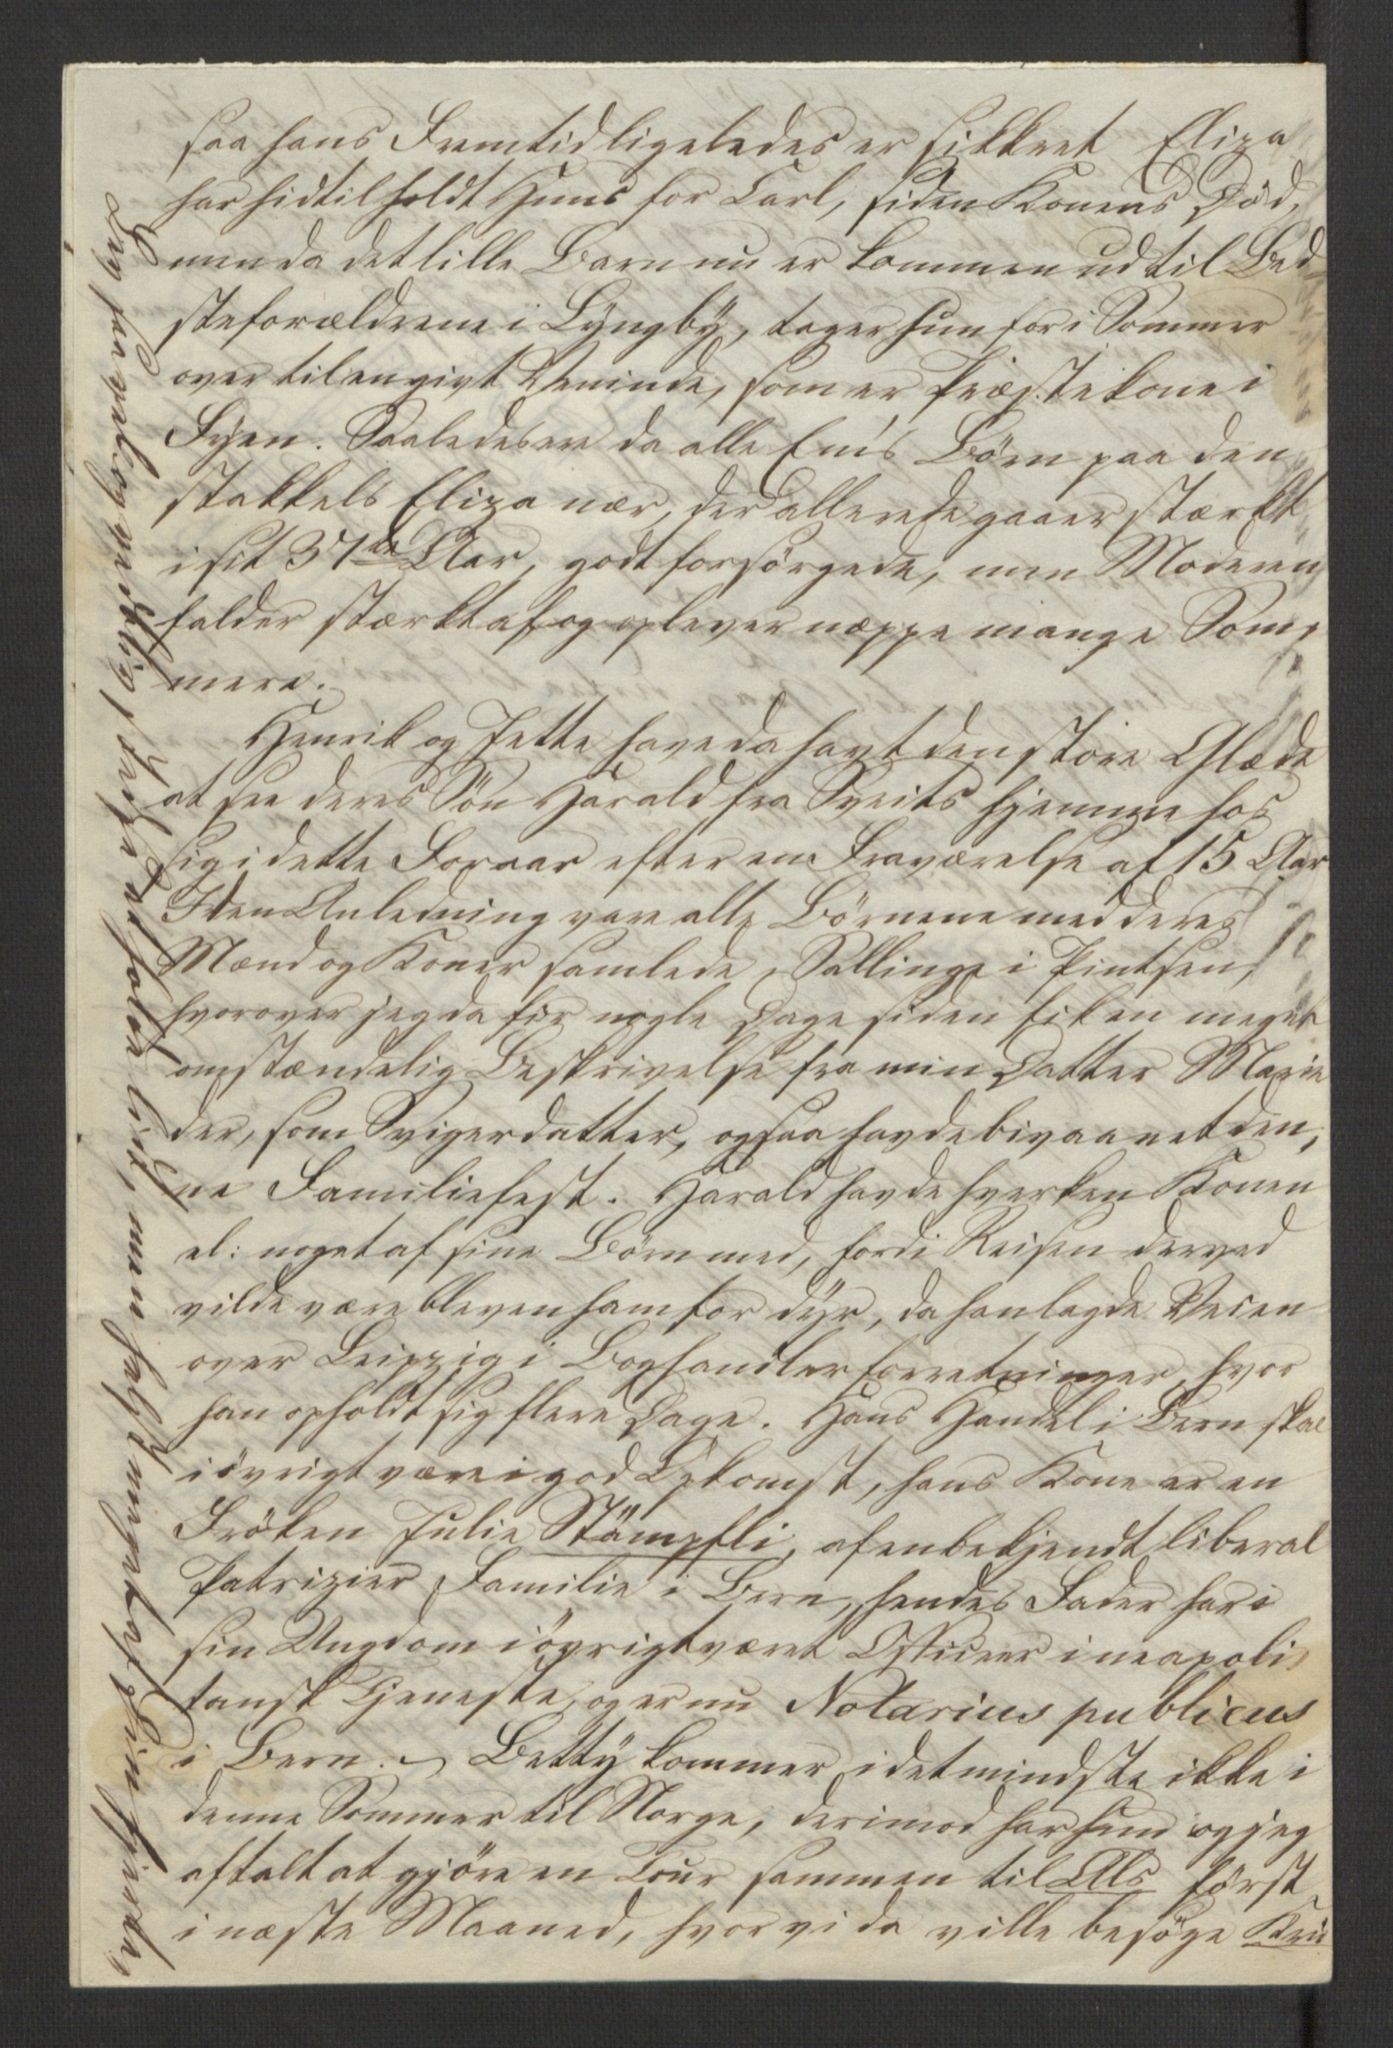 saa hans Fremtid ligeledes er sikkret Eliza
har hidtil holdt Huus for Carl, siden Konens Död,
men da det lille Barn nu er kommen ud til Bed
steforældrene i Lyngby, tager hun for i Sommer
over til en givt Veninde, som er Præstekone i
Fyen. Saaledes ere da alle Emis Börn paa den
stakkels Eliza nær, der allerede gaaer stærkt
i sit 37te Aar, godt forsörgede, men Moderen
falder stærkt af og oplever næppe mange Som-
mere.
Henrik og Jette have da havt den store Glæde
at see deres Sön Harald fra Sveits hjemme hos
sig i dette Foraar efter en Fraværelse af 15 Aar
I den Anledning vare alle Börnene med deres
Mænd og Koner samlede, Sallinge i Pintsen,
hvorover jeg da for nogle Dage siden fik en meget
omstændelig Beskrivelse fra min Datter Marie
der, som Svigerdatter, ogsaa havde bivaanet den-
ne Familiefest. Harald havde hverken Konen
el: noget af sine Börn med, fordi Reisen derved
vilde være bleven ham for dyr, da han lagde Veien
over Leipzig i Boghandlerforretninger, hvor
han opholdt sig flere Dage. Hans Handel i Bern skal
iövrigt være i god Opkomst, hans Kone er en
Fröken Julie Stämpfli, af en bekjendt liberal
Patrizier Familie i Bern, hendes Fader har i
sin Ungdom iövrigt været Officeer i neapoli-
tansk Tjeneste, og er nu Notarius publicus
i Bern. Betty kommer idetmindste ikke i
denne Sommer til Norge, derimod har hun og jeg
aftalt at gjöre en Tour sammen til Als först
i næste Maaned, hvor vi da ville besöge Kri